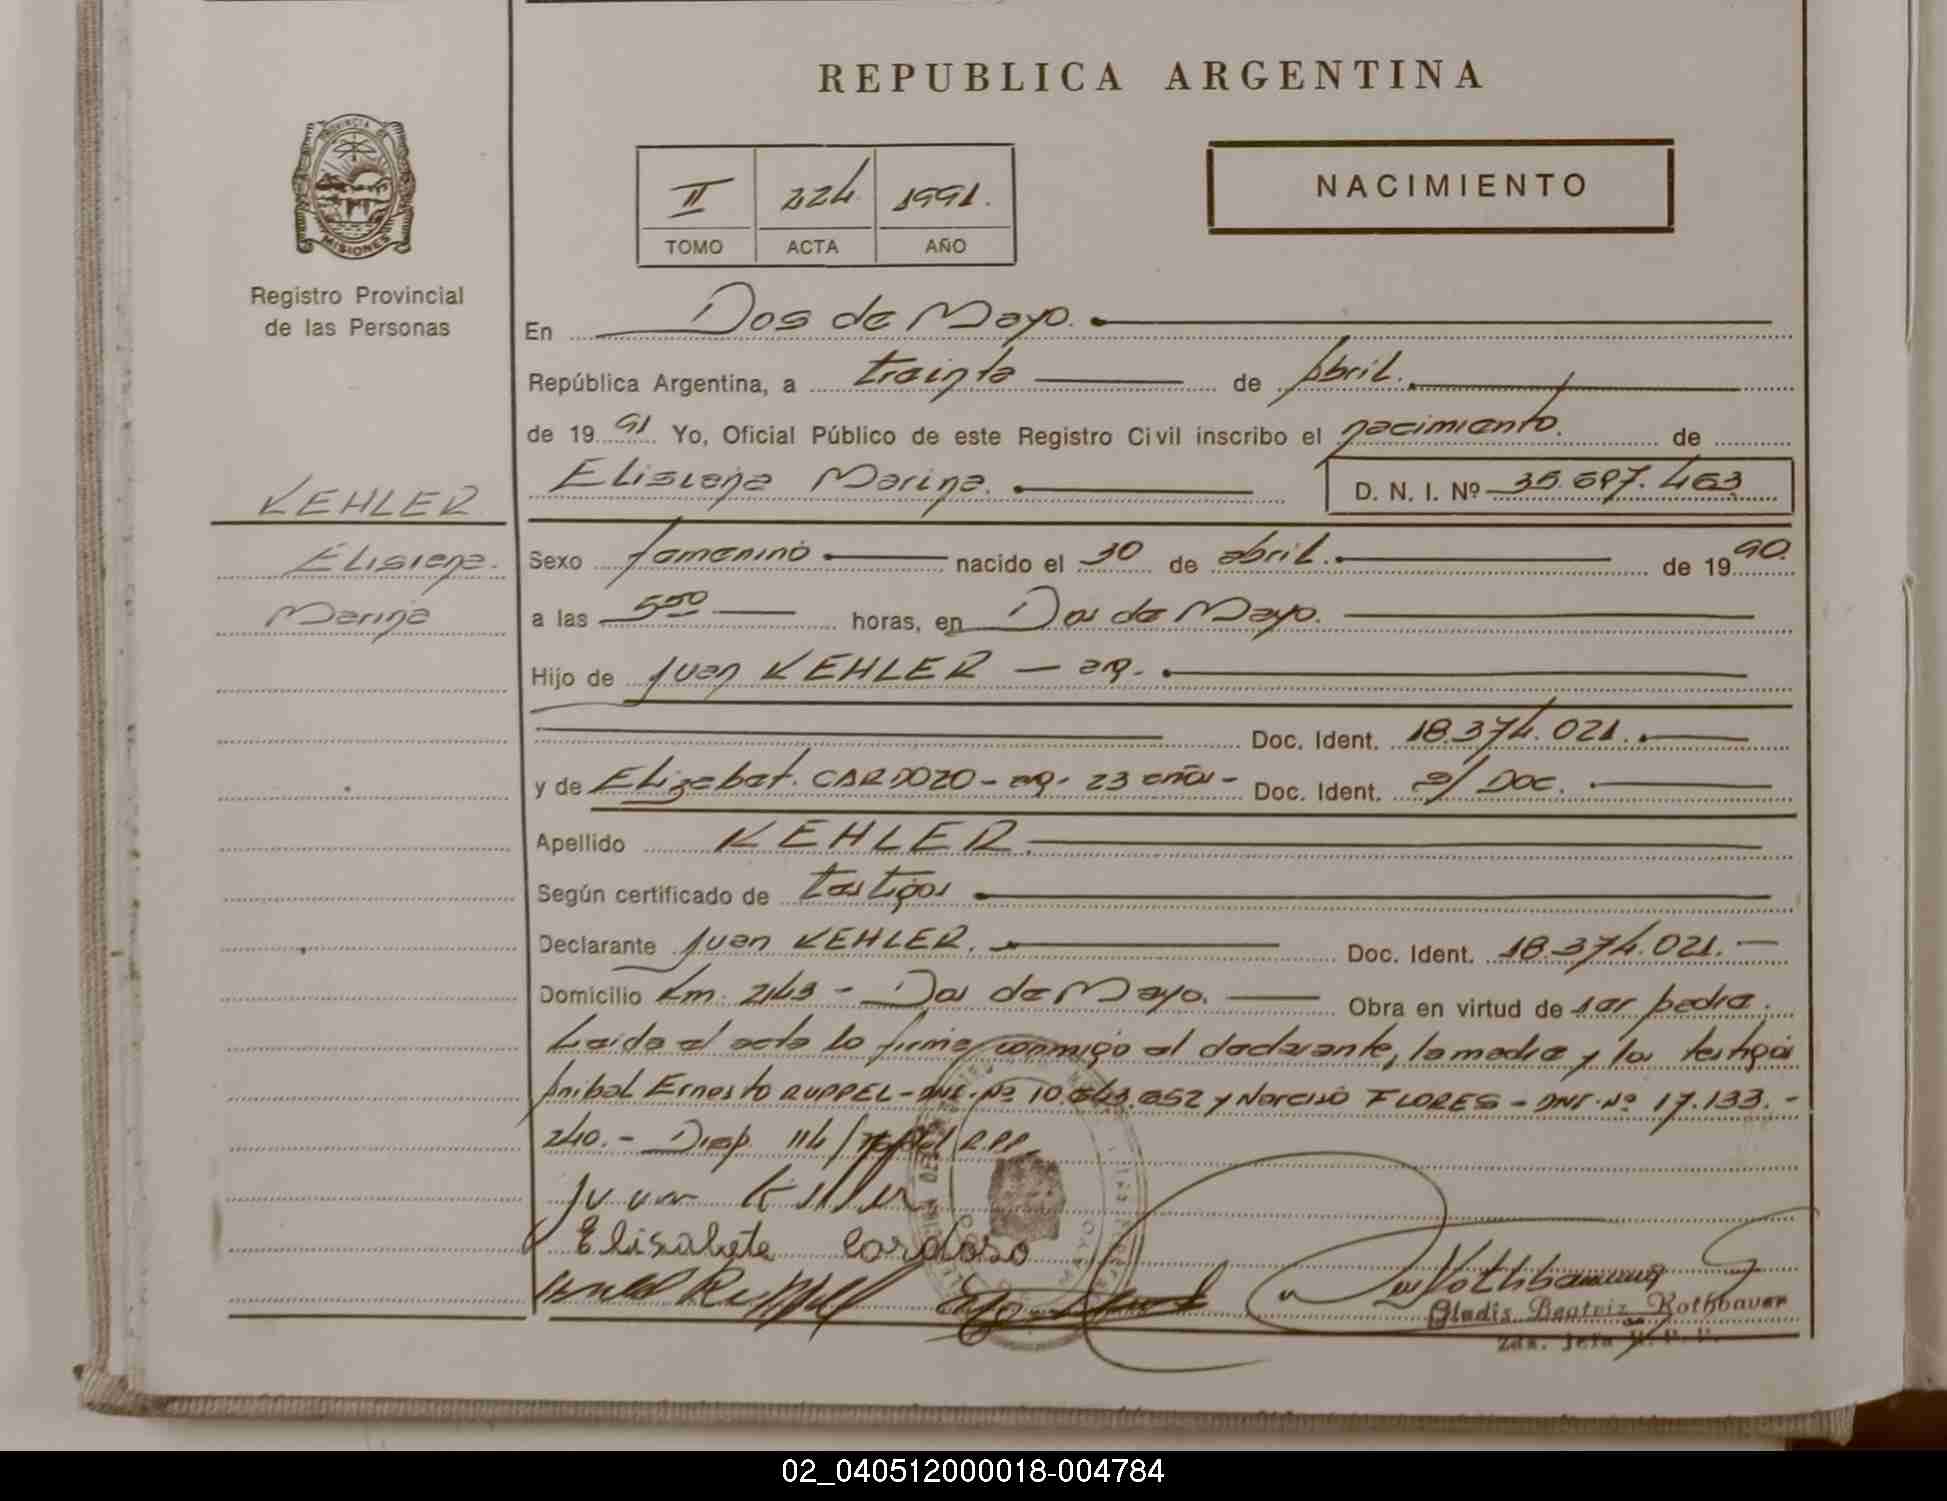 REPUBLICA ARGENTINA
PROVINCIA DE
MISIONES
Registro Provincial
de las Personas
II 224 1991.
TOMO ACTA AÑO
NACIMIENTO
En Dos de Mayo.
República Argentina, a treinta de Abril.
de 19 91 Yo, Oficial Público de este Registro Civil inscribo el nacimiento. de
Elisiena Marina. D. N. I. Nº 35.697.463
KEHLER
Elisiena.
Marina
Sexo femenino nacido el 30 de abril. de 19 90.
a las 5 50 horas, en Dos de Mayo.
Hijo de Juan KEHLER — arg.
Doc. Ident. 18.374.021.
y de Elizabet. CARDOZO - arg - 23 años - Doc. Ident. s/ DOC.
Apellido KEHLER.
Según certificado de testigos
Declarante Juan KEHLER. Doc. Ident. 18.374.021.
Domicilio Km. 243 - Dos de Mayo. Obra en virtud de ser padre.
Leida el acta lo firma conmigo el declarante, la madre y los testigos
Anibal Ernesto RUPPEL - DNI. Nº 10. 652 y Narciso FLORES - DNI. Nº 17.133.-
240. - Disp. 114/ R.P.P.
Juan
Elisabete Cardoso
Rothbauer
Gladis Beatriz Rothbauer
2da. Jefa R. P. P.
02_040512000018-004784